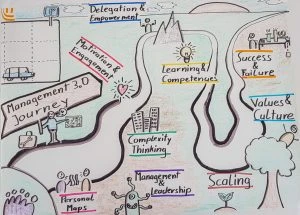 Delegation &
Empowerment
Motivation &
Engagement
Learning &
Competencies
Success
&
Failure
Management 3.0
Journey
Values &
Culture
Complexity
Thinking
Management
& Leadership
Scaling
Personal
Maps